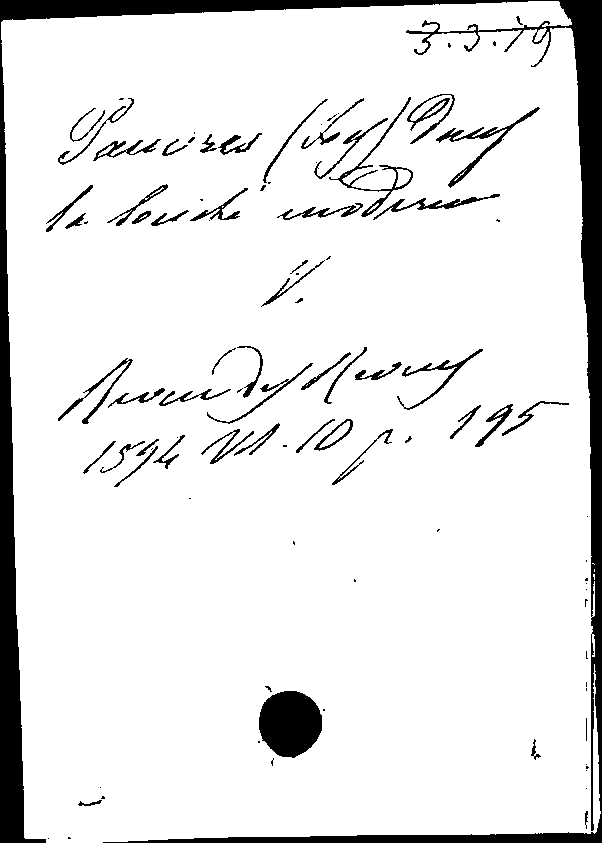 3.3.19
Pauvres (Les) Dans
la Société moderne.
V.
Revue des Revues
1894 Vol. 10 p. 195